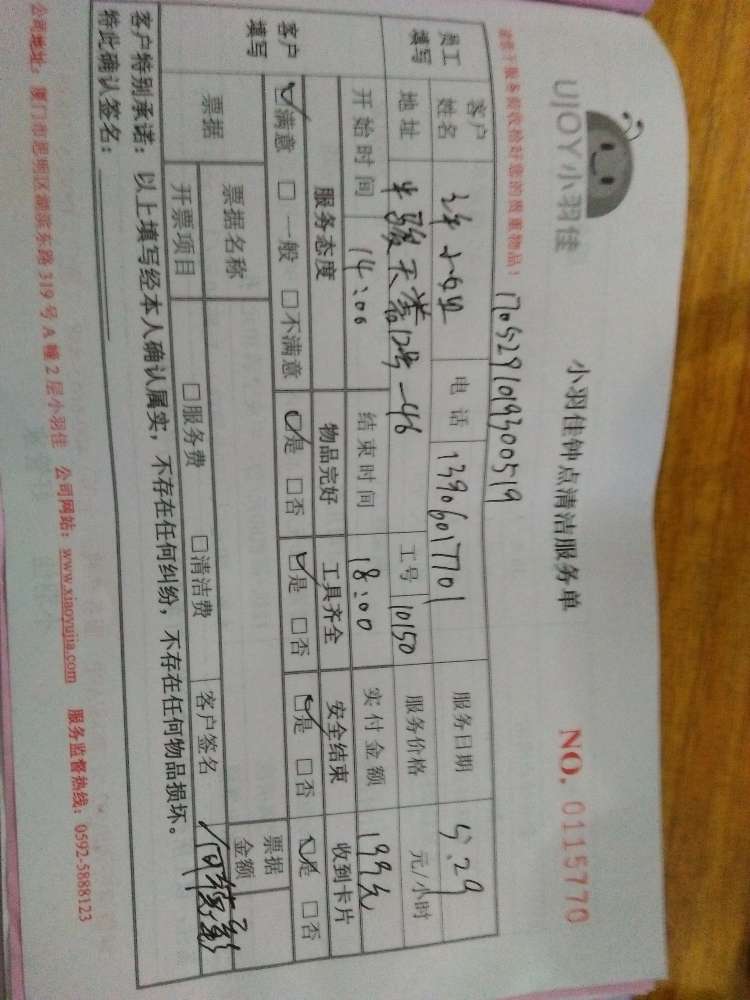 UJOY小羽佳
小羽佳钟点清洁服务单
NO. 0115770
请您于服务前收拾好您的贵重物品!
1705291019300519
员工填写 客户姓名 小姐 电话 13906017701 服务日期 5.29
地址 半骏天 12号 工号 10150 服务价格 元/小时
开始时间 14:00 结束时间 18:00 实付金额 199元
客户填写 服务态度 物品完好 工具齐全 安全结束 收到卡片
☑满意 □一般 □不满意 ☑是 □否 ☑是 □否 ☑是 □否 ☑是 □否
票据 票据名称 票据金额
开票项目 □服务费 □清洁费 客户签名
客户特别承诺:以上填写经本人确认属实,不存在任何纠纷,不存在任何物品损坏。
特此确认签名:
公司地址:厦门市思明区湖滨东路319号A幢2层小羽佳 公司网站:www.xiaoyujia.com 服务监督热线:0592-5888123